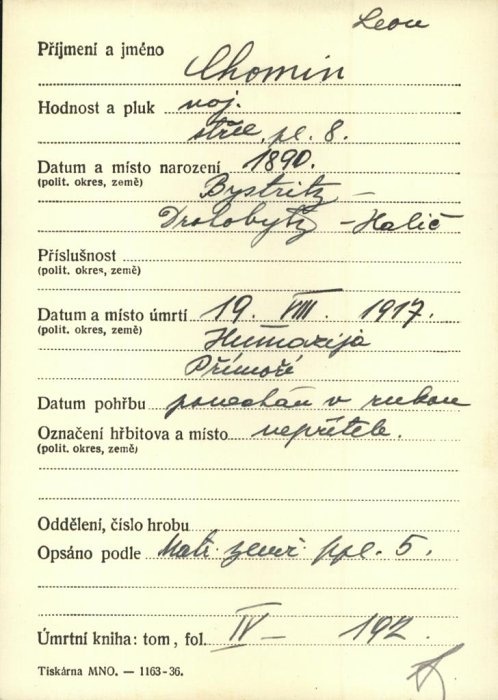 Leon
Příjmení a jméno Chomin
Hodnost a pluk voj.
střel. pl. 8.
Datum a místo narození 1890.
(polit. okres, země) Bystritz –
Drohobytz – Halič
Příslušnost
(polit. okres, země)
Datum a místo úmrtí 19. VIII. 1917.
(polit. okres, země)
Přímoří
Datum pohřbu ponechán v rukou
Označení hřbitova a místo nepřítele.
(polit. okres, země)
Oddělení, číslo hrobu
Opsáno podle Matr. zemř. ppl. 5.
Úmrtní kniha: tom, fol. IV – 192.
Tiskárna MNO. — 1163-36.